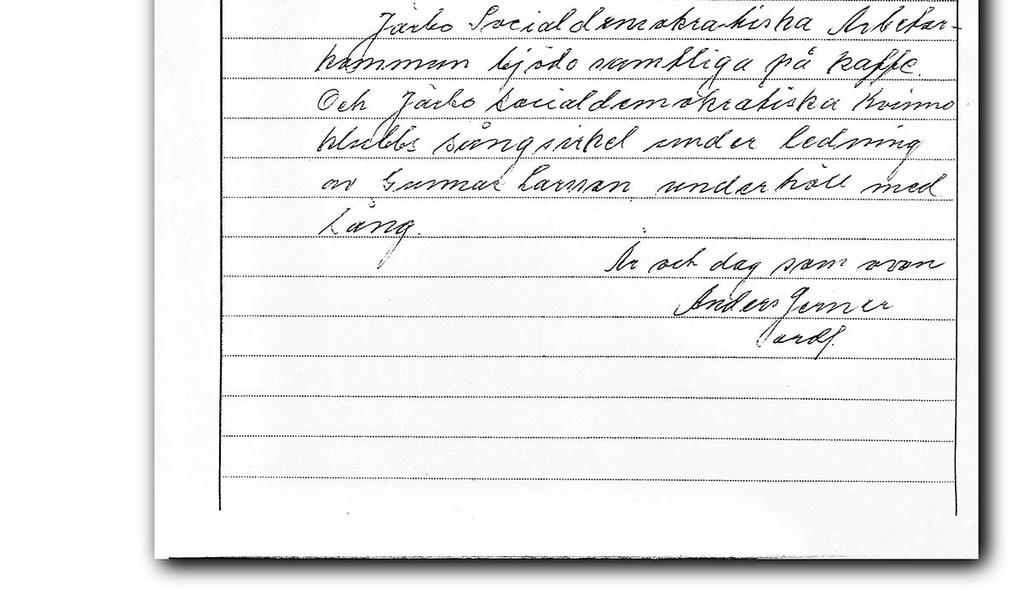 Järbo Socialdemokratiska Arbetar-
kommun bjödo samtliga på kaffe.
Och Järbo socialdemokratiska Kvinno
klubbs sångsirkel under ledning
av Gunnar Larsson underhöll med
sång.
År och dag som ovan
Anders Jerner
ordf.